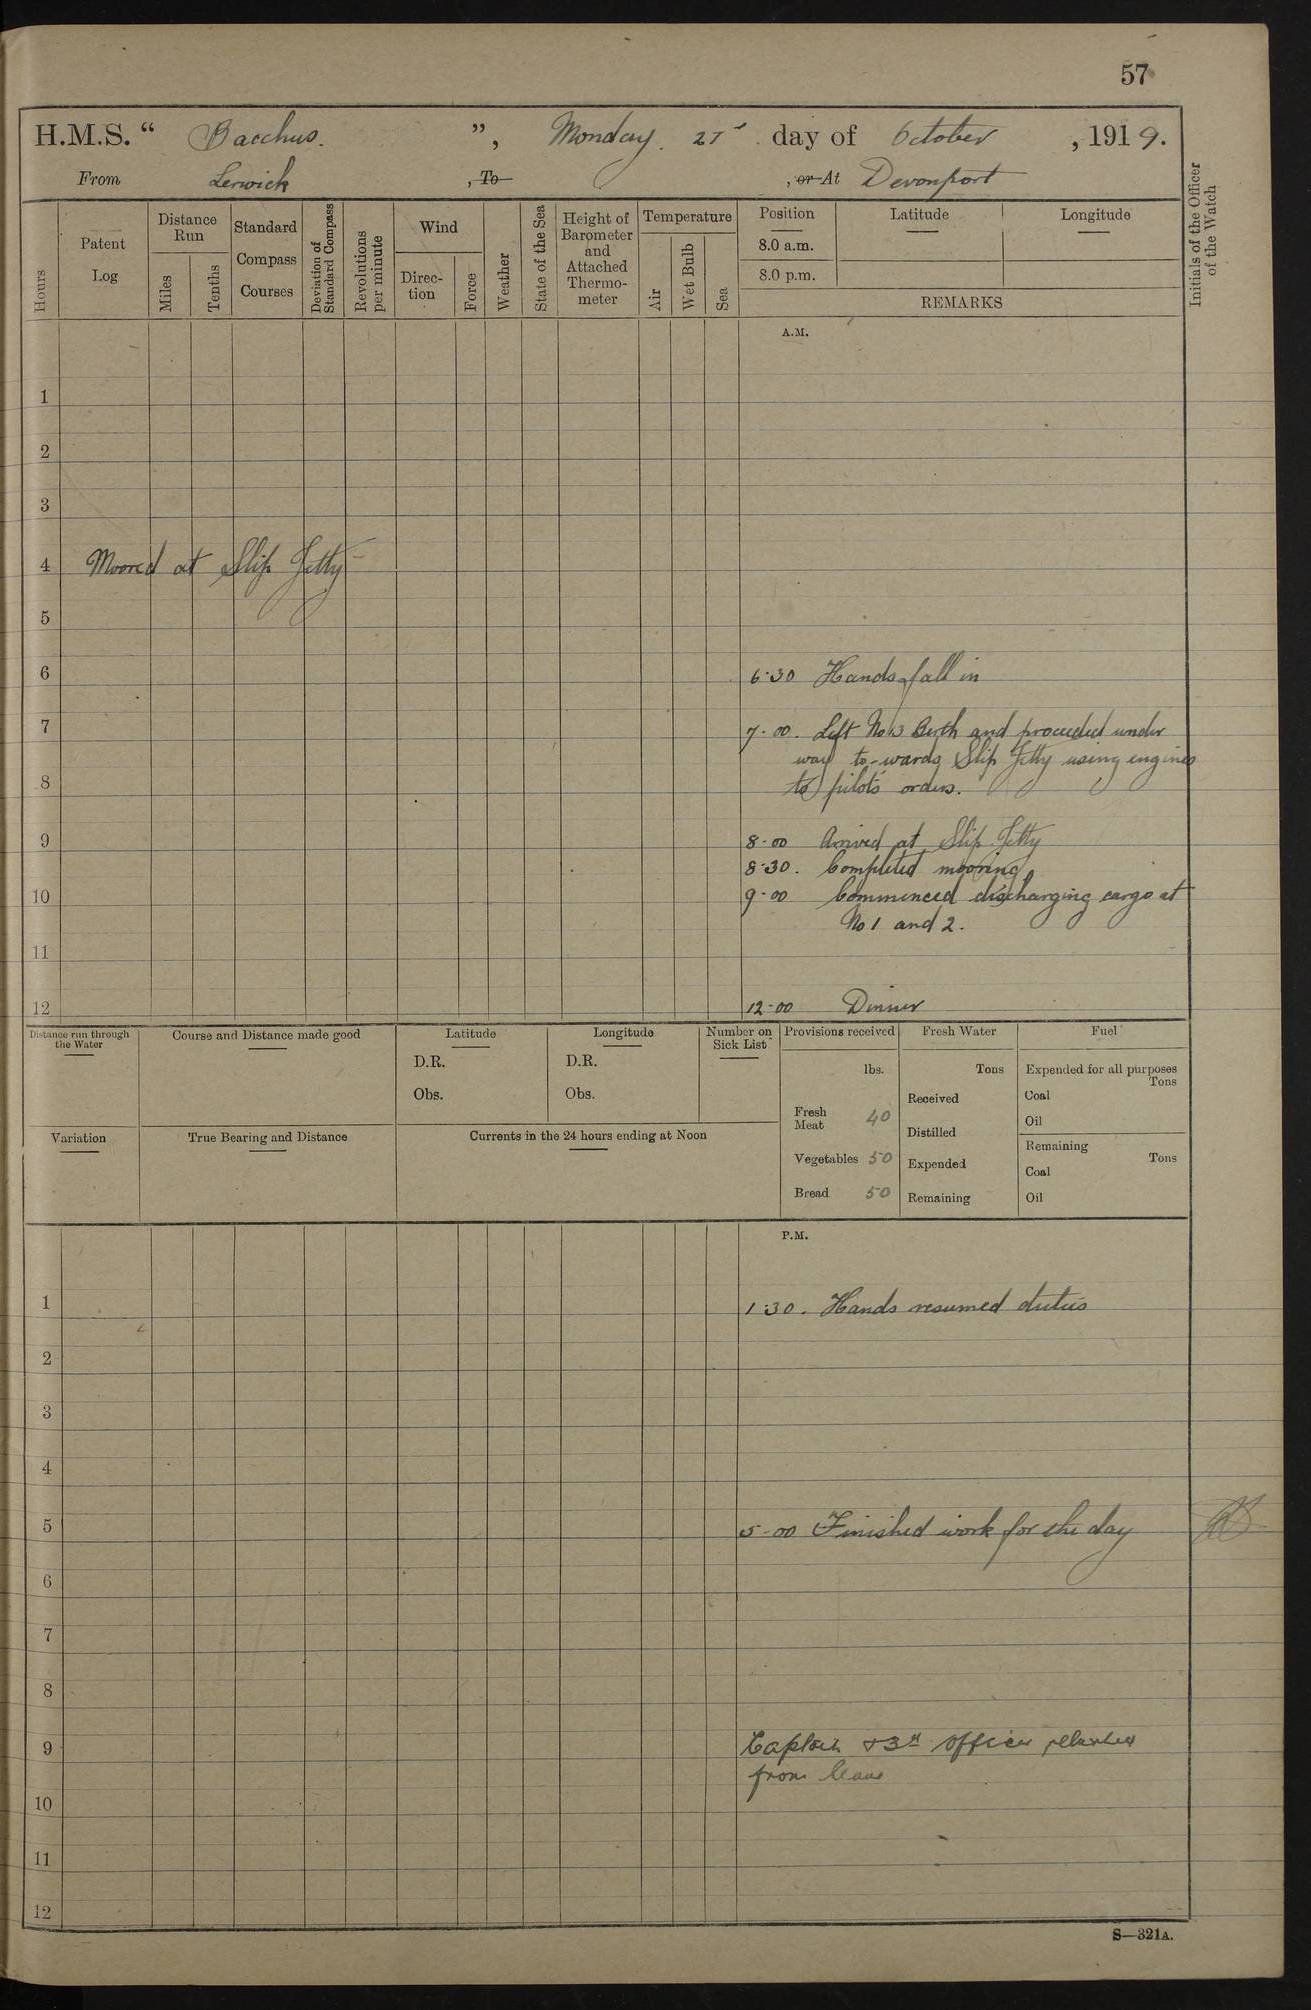 57
H.M.S. “ Bacchus. ”, Monday. 27 day of October , 1919.
From Lerwick , To , or At Devonport
Hours
Patent Log
Distance Run
Miles
Tenths
Standard Compass Courses
Deviation of Standard Compass
Revolutions per minute
Wind
Direc-tion
Force
Weather
State of the Sea
Height of Barometer and Attached Thermo-meter
Temperature
Air
Wet Bulb
Sea
Position
8.0 a.m.
8.0 p.m.
Latitude
Longitude
REMARKS
Initials of the Officer of the Watch
A.M.
1
2
3
4 Moored at Slip Jetty
5
6 6·30 Hands fall in
7 7-00. Left No 3 Berth and proceeded under
way to-wards Slip Jetty using engines
8 to pilots orders.
9 8-00 Arrived at Slip Jetty
8·30. Completed mooring
10 9-00 Commenced discharging cargo at
No 1 and 2.
11
12 12-00 Dinner
Distance run through the Water
Course and Distance made good
Latitude
D.R.
Obs.
Longitude
D.R.
Obs.
Number on Sick List
Provisions received
lbs.
Fresh Meat 40
Vegetables 50
Bread 50
Fresh Water
Tons
Received
Distilled
Expended
Remaining
Fuel
Expended for all purposes
Tons
Coal
Oil
Remaining
Tons
Coal
Oil
Variation
True Bearing and Distance
Currents in the 24 hours ending at Noon
P.M.
1 1·30. Hands resumed duties
2
3
4
5 5-00 Finished work for the day
6
7
8
9 Captain & 3rd Officer returned
from leave
10
11
12
S—321A.